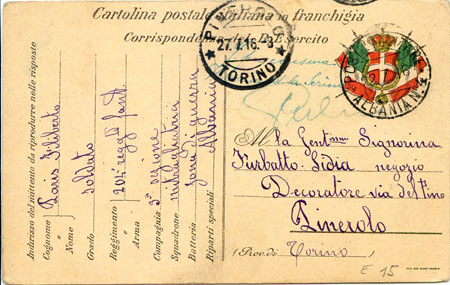 Cartolina postale italiana in franchigia
Corrispondenza del R. Esercito
PINEROLO
27.1.16.-8
TORINO
ALBANIA N. 4
Indirizzo del mittente da riprodurre nelle risposte
Cognome e Nome Paris Filiberto
Grado soldato
Reggimento 204 regg.to fant.
Arma
Compagnia 3a sezione
Squadrone mitragliatrici
Batteria zona di guerra
Riparti speciali Albania
Alla Gent.ssma Signorina
Turbatto Lidia negozio
Decoratore via del Pino
Pinerolo
(Prov. di Torino)
E 15